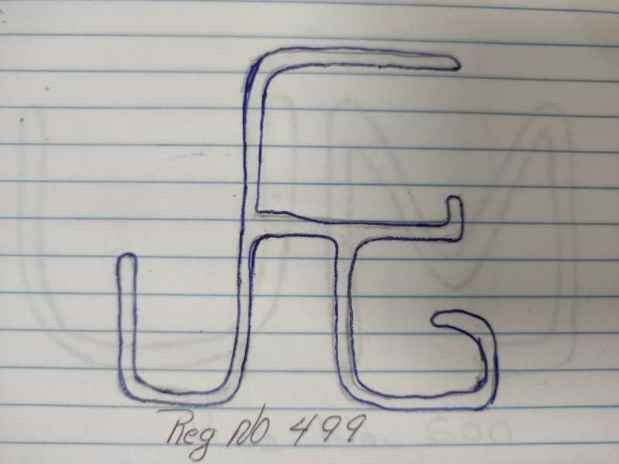 Reg NO 499